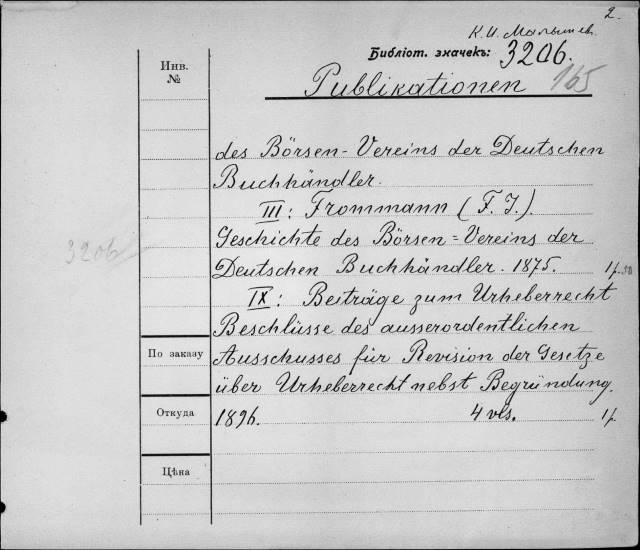 2.
К. И. Малышев.
Библіот. значекъ: 3206.
165
Publikationen
Инв.
№
des Börsen-Vereins der Deutschen
Buchhändler.
III: Frommann (F. J.).
3206
Geschichte des Börsen=Vereins der
Deutschen Buchhändler. 1875. 1р.50
IX: Beiträge zum Urheberrecht
Beschlüsse des ausserordentlichen
По заказу
Ausschusses für Revision der Gesetze
über Urheberrecht nebst Begründung.
Откуда
1896. 4 vls. 1р.
Цѣна